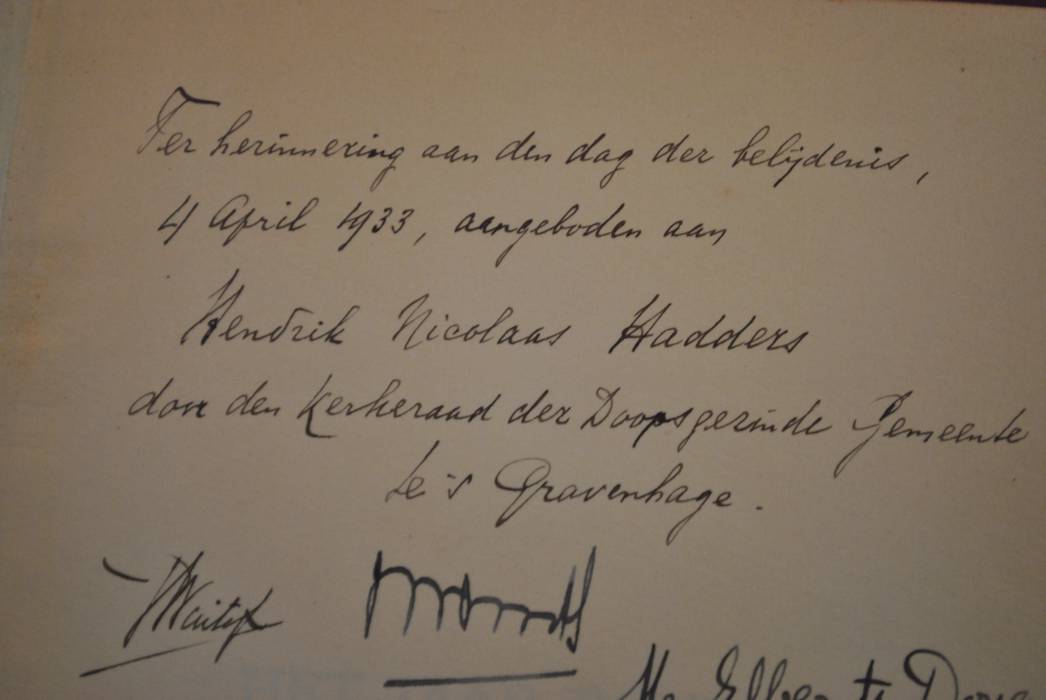 Ter herinnering aan den dag der belijdenis,
4 April 1933, aangeboden aan
Hendrik Nicolaas Hadders
door den Kerkeraad der Doopsgezinde Gemeente
te 's Gravenhage.